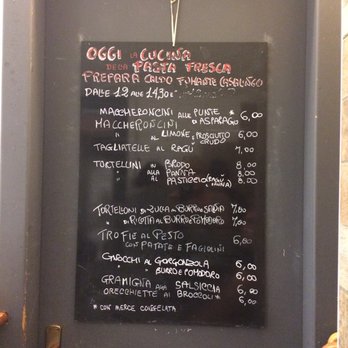 OGGI LA CUCINA
DELLA PASTA FRESCA
PREPARA CALDO FUMANTE CASALINGO
DALLE 12 ALLE 14,30
MACCHERONCINI ALLE PUNTE * D'ASPARAGO 6,00
MACCHERONCINI AL LIMONE E PROSCIUTTO CRUDO 6,00
TAGLIATELLE AL RAGÙ 7,00
TORTELLINI IN BRODO 8,00
" ALLA PANNA 8,00
" AL PASTICCIO (RAGÙ PANNA) 8,00
TORTELLONI DI ZUCCA AL BURRO E SALVIA 7,00
" DI RICOTTA AL BURRO E POMODORO 7,00
TROFIE AL PESTO
CON PATATE E FAGIOLINI 6,00
GNOCCHI AL GORGONZOLA 6,00
" BURRO E POMODORO 6,00
GRAMIGNA ALLA SALSICCIA 6,00
ORECCHIETTE AI BROCCOLI * 6,00
* CON MERCE CONGELATA